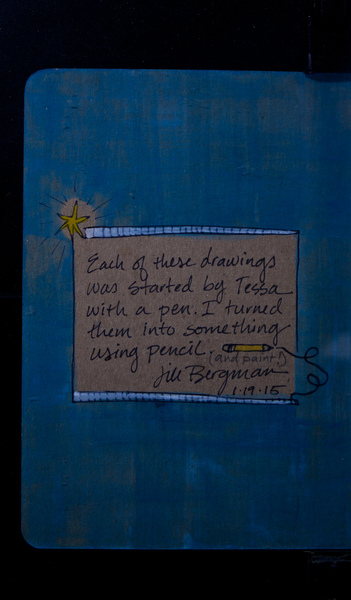 Each of these drawings
was started by Tessa
with a pen. I turned
them into something
using pencil.
(and paint!)
Jill Bergman
1.19.15